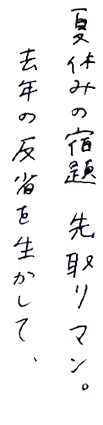 夏休みの宿題 先取りマン。
去年の反省を生かして、